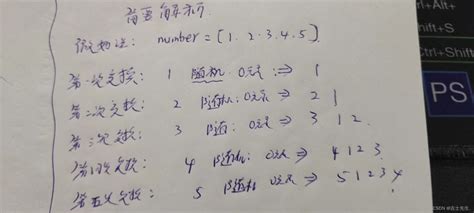 简要解析
微如述: number = [1. 2. 3. 4. 5]
第一次交换: 1 随机. 0元素 ⇒ 1
第二次交换: 2 随机: 0元素 ⇒ 2 1
第三次交换: 3 随: 0元素 ⇒ 3 1 2
第四次交换: 4 随机: 0元素 ⇒ 4 1 2 3
第五次交换: 5 随机 0元素 ⇒ 5 1 2 3 4
trl+Alt+
ift+S
Ctrl+Shift
PS
CSDN @吉士先生